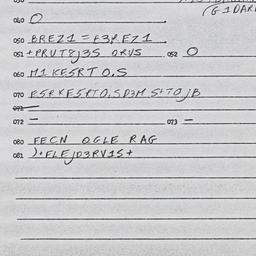 (G1DAR
040 O
050 BREZ1=E3R.EZ1
051 +PRUT8j3S ORUS 052 O
060 M1 KE5RT O,S
070 E5R KE5RTO,SD3M S+TOjB
071 —
072 — 073 —
080 FECN OGLE RAG
081 )+FLEJD3RV1S+